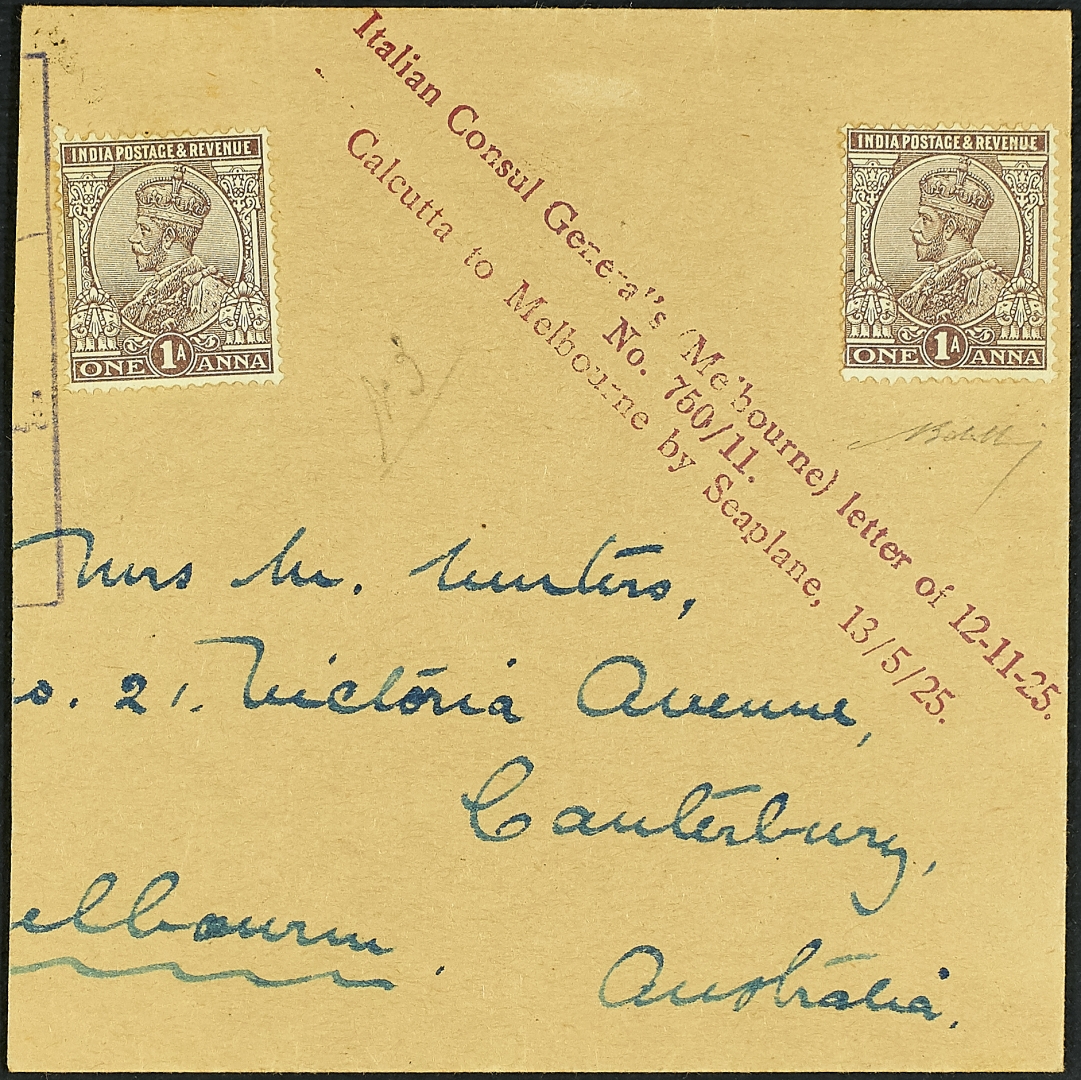 Italian Consul General's (Melbourne) letter of 12-11-25.
No. 750/11.
Calcutta to Melbourne by Seaplane, 13/5/25.
INDIA POSTAGE & REVENUE
1A
ONE ANNA
INDIA POSTAGE & REVENUE
1A
ONE ANNA
Mrs M. Winters,
o. 21. Victoria Avenue,
Canterbury,
elbourne.
Australia.